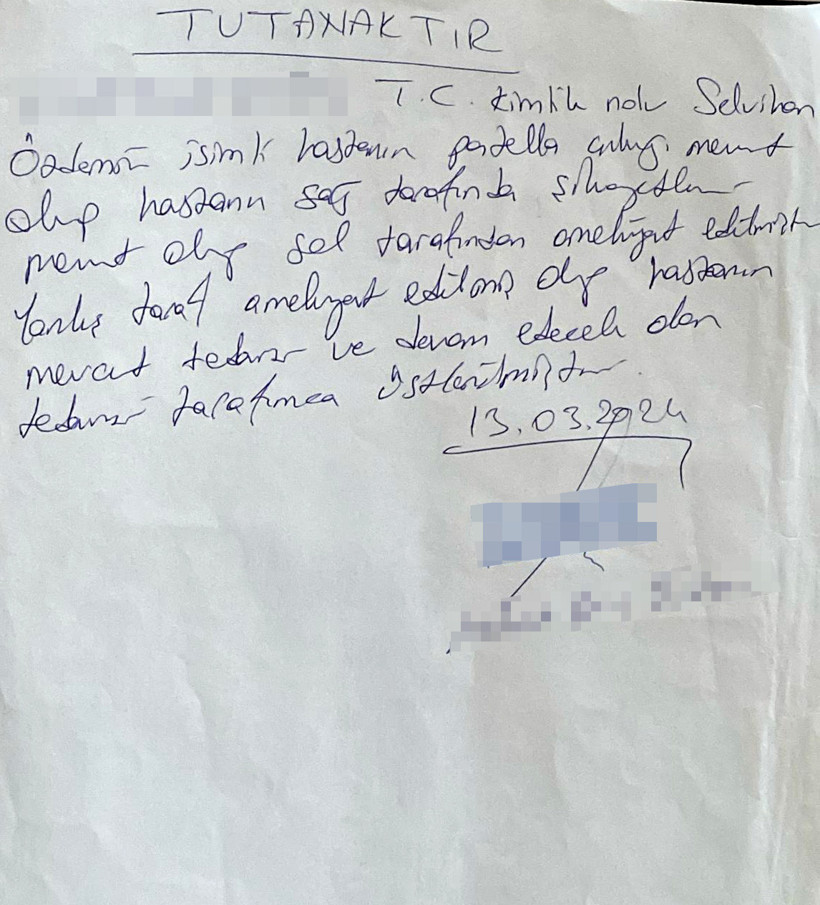 TUTANAKTIR
T.C. Kimlik nolu Selvihan
Özdemir isimli hastanın patella çıkığı mevcut
olup hastanın sağ tarafında şikayetleri
mevcut olup sol tarafından ameliyat edilmiştir
Yanlış taraf ameliyat edilmiş olup hastanın
mevcut tedavisi ve devam edecek olan
tedavisi tarafımca üstlenilmiştir.
13.03.2024